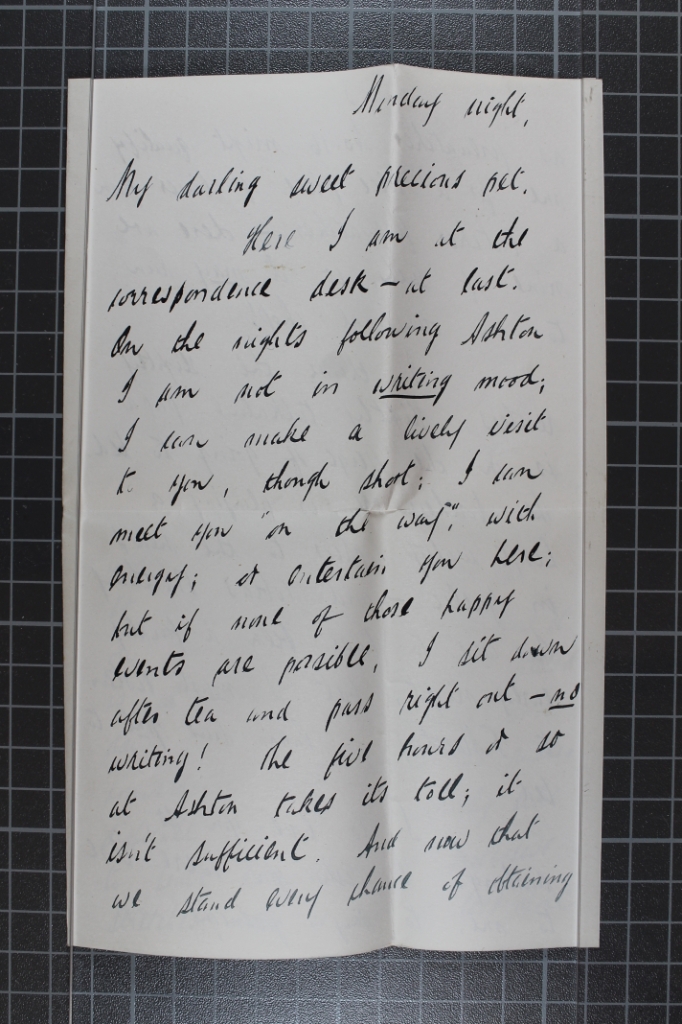 Monday night,
My darling sweet precious pet.
Here I am at the
correspondence desk – at last.
On the nights following Ashton
I am not in writing mood;
I can make a lively visit
to you, though short; I can
meet you "on the way", with
energy; or entertain you here;
but if none of those happy
events are possible, I sit down
after tea and pass right out – no
writing! The five hours or so
at Ashton takes its toll; it
isn't sufficient. And now that
we stand every chance of obtaining